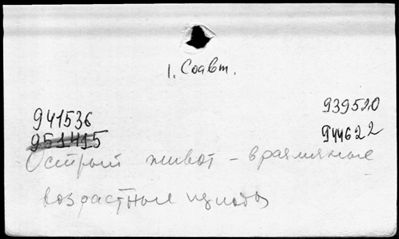 1. Соавт.
941536 939510
951415 944622
Острый живот –
возрастные